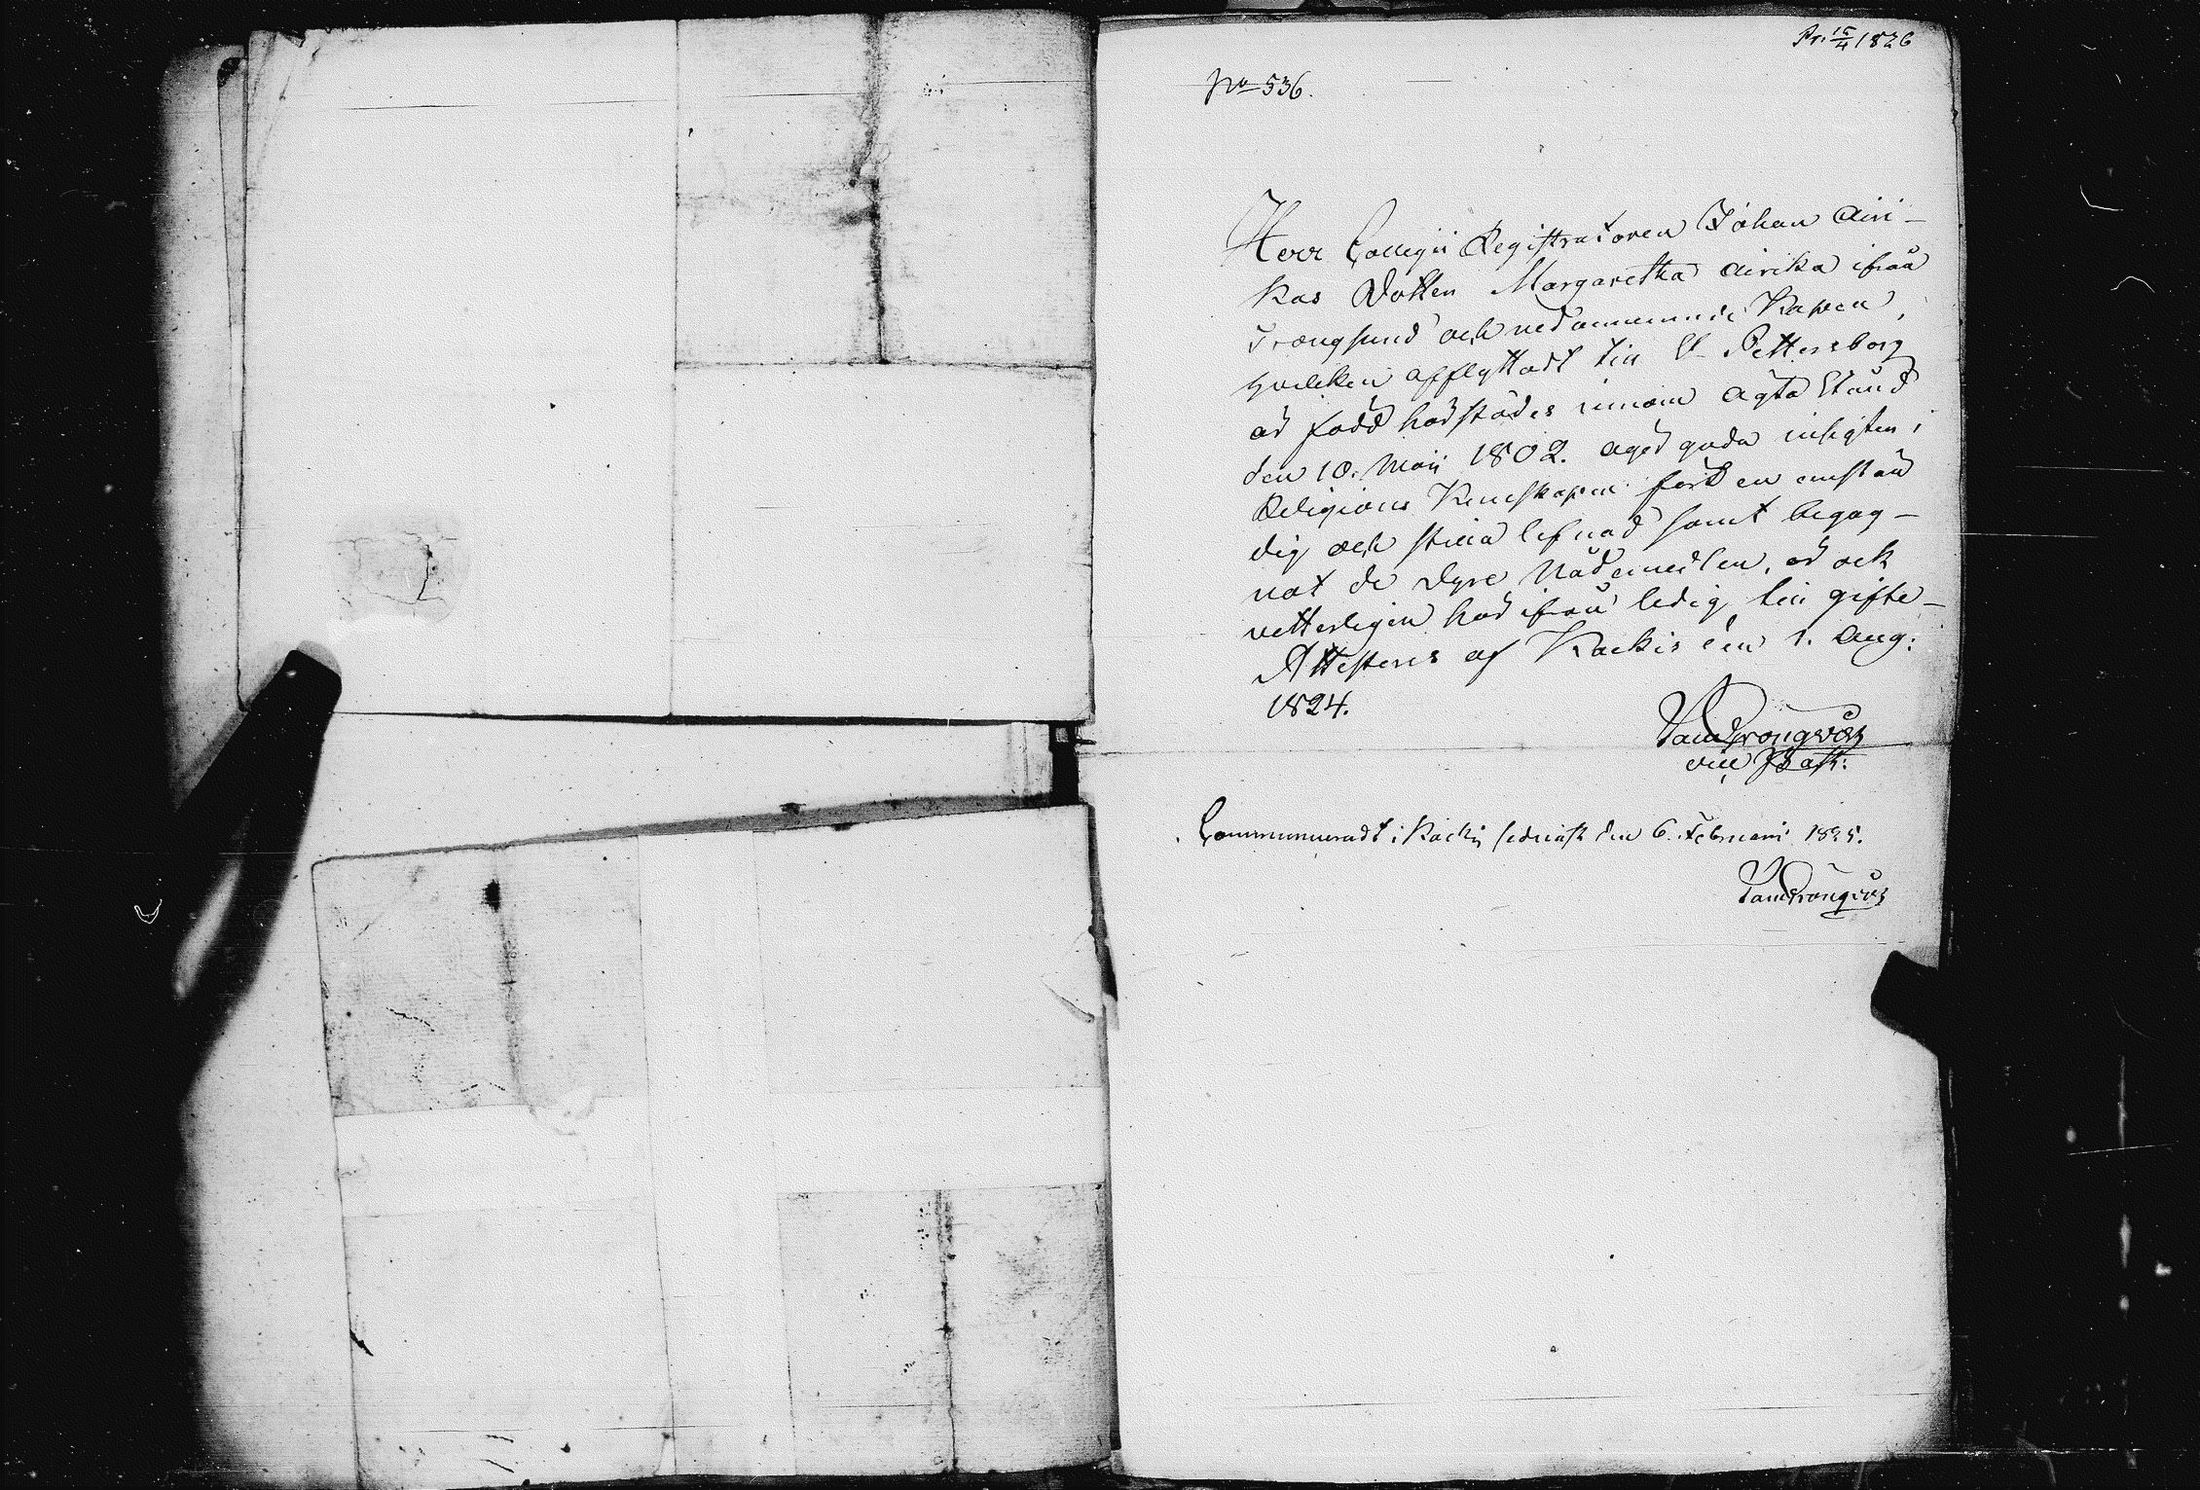 Pr. 15/4 1826
No 536.
Herr Collegii Registratoren Johan Airi-
kas Dotter Margaretha Airika ifrån
Trångsund och Kapen,
hvilken afflyttadt till St Pettersborg
är född härstädes innom ägta Stånd
den 10. Maii 1802. äger goda insigter i
Religions Kunskapen fört en anstän
dig och stilla lefnad samt begag-
nat de dyre Nådemedlen, är ock
vetterligen härifrån ledig till gifte-
Attesteras af Kackis den 1. Aug:
1824.
vice Past:
Communiceradt i Kackis sednast den 6. Februarii 1825.